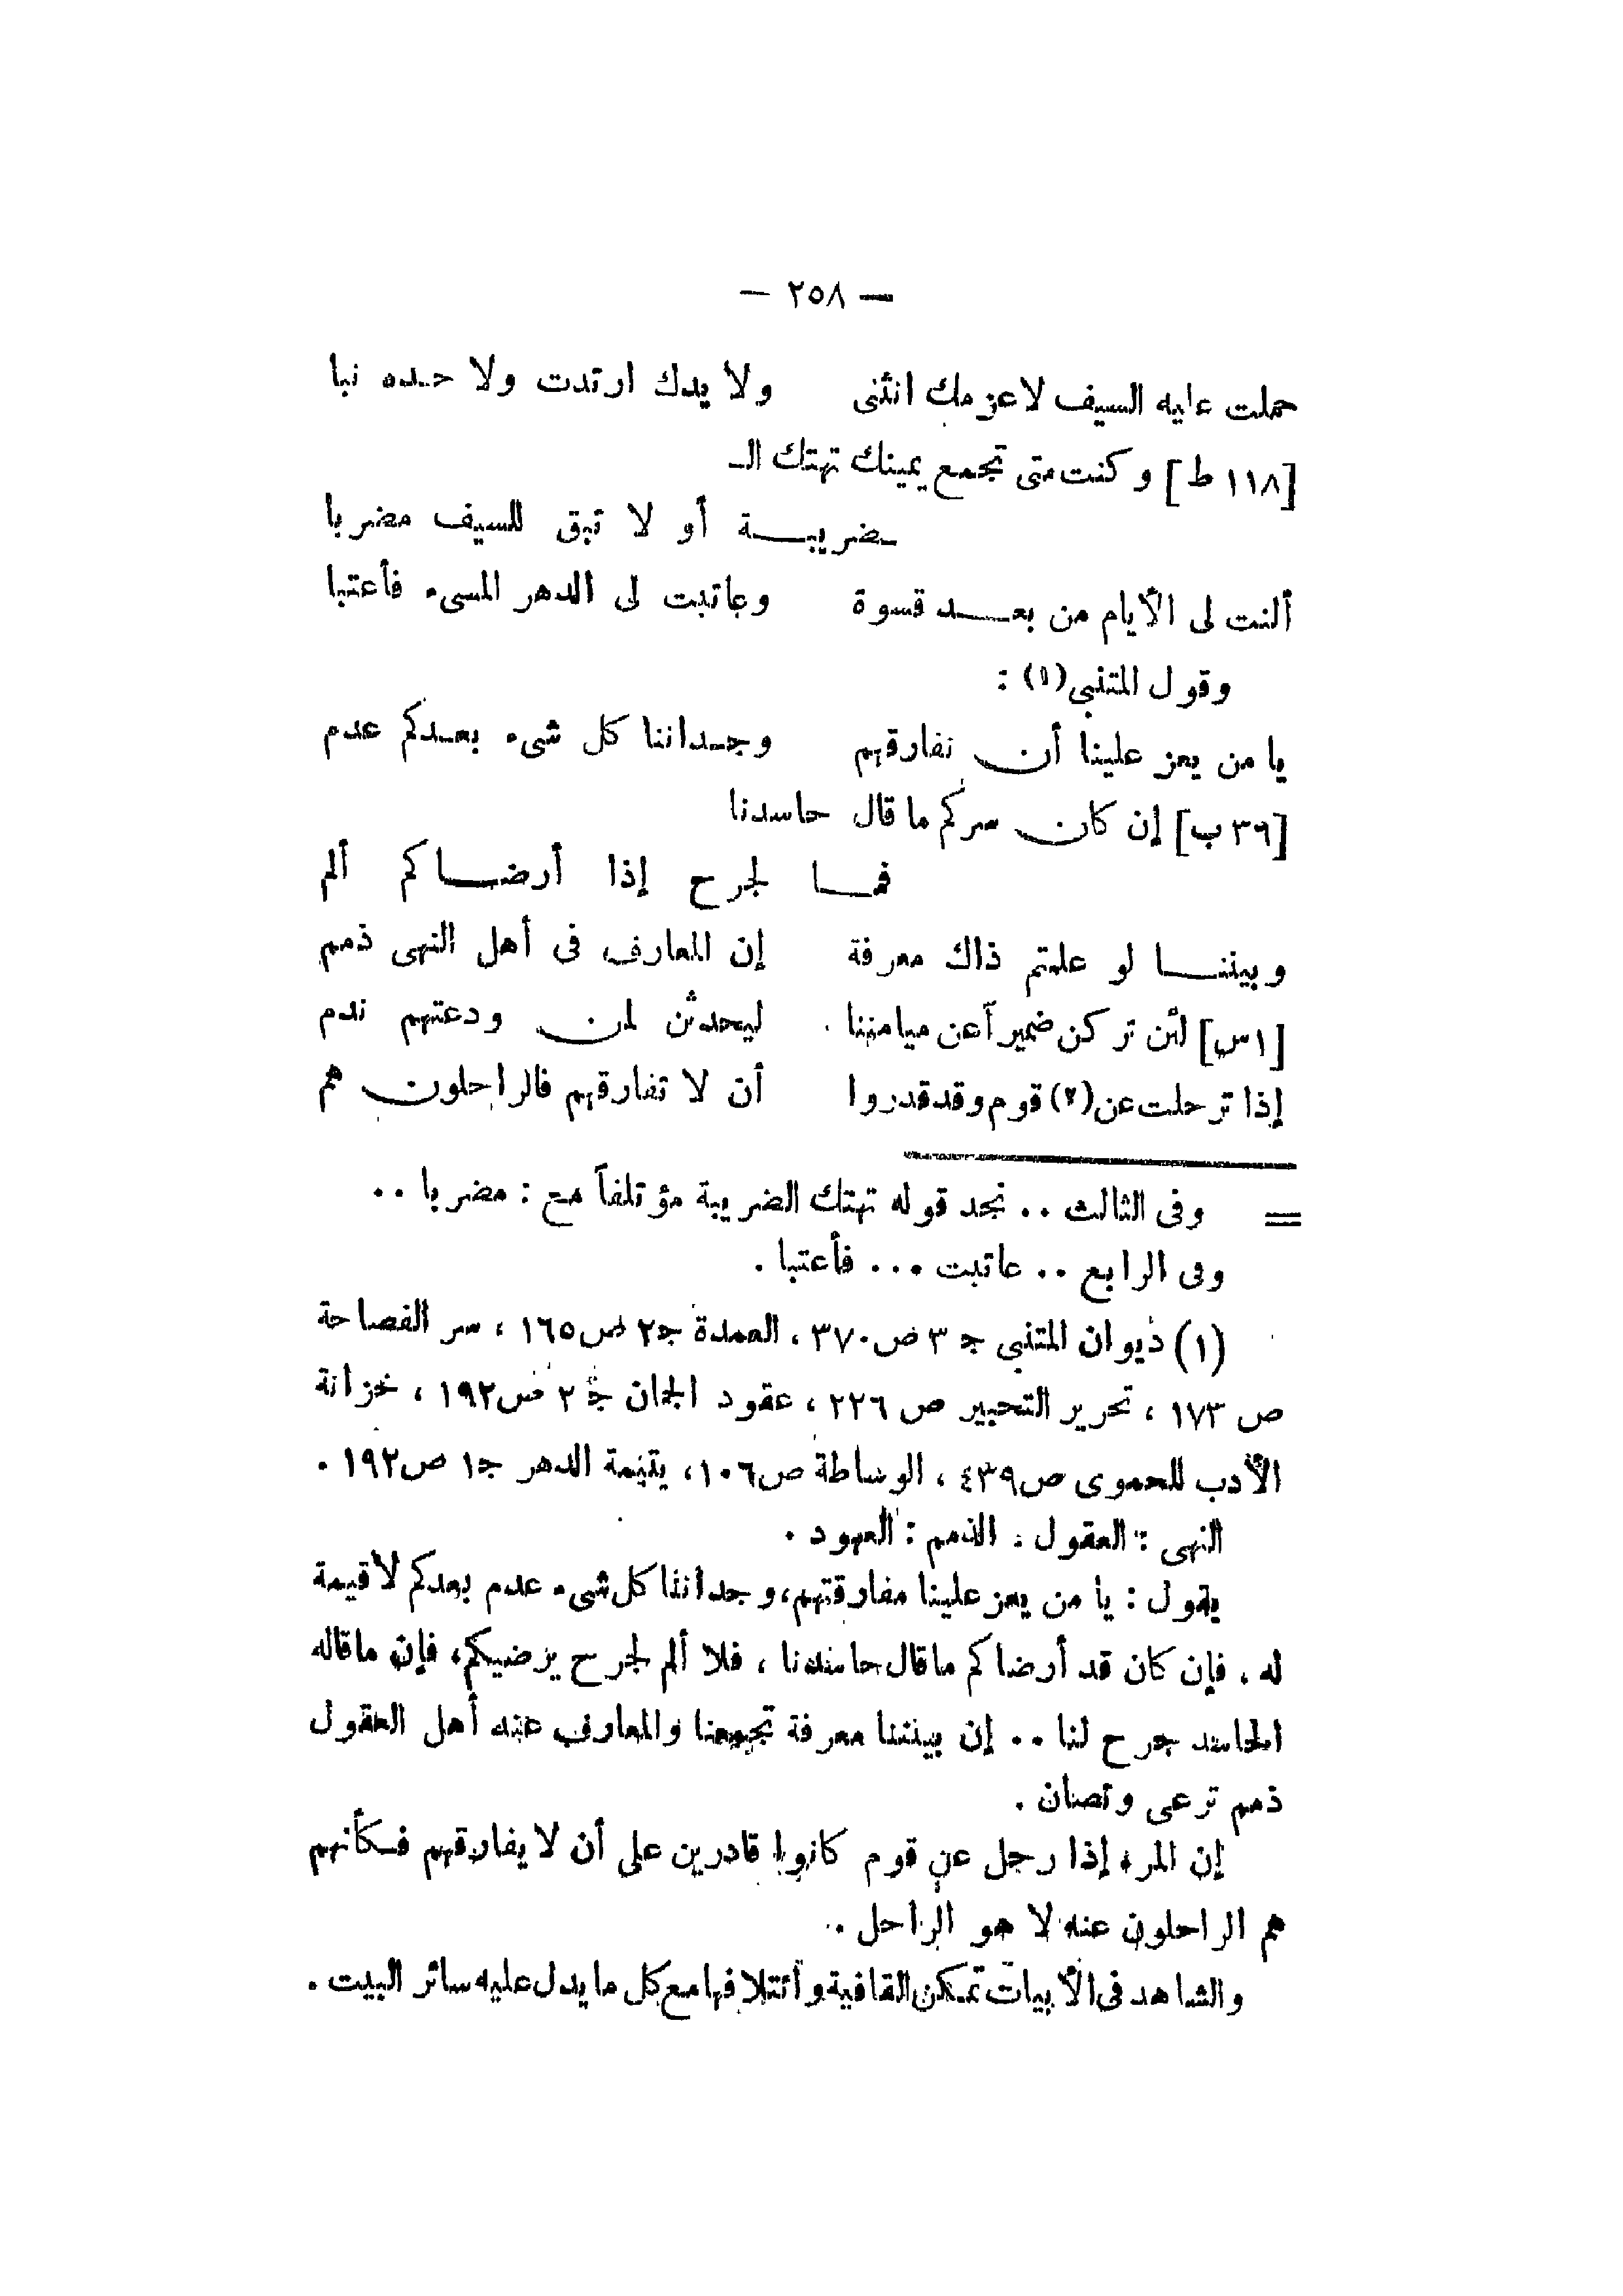 — ٢٥٨ —
حملت عليه السيف لا عزمك انثنى ولا يدك ارتدت ولا حده نبا
[١١٨ ط] وكنت متى تجمع يمينك تهتك الـ
ـضريبة أو لا تبق للسيف مضربا
ألنت لى الأيام من بعد قسوة وعاتبت لى الدهر المسىء فأعتبا
وقول المتنبى(١) :
يا من يعز علينا أن نفارقهم وجداننا كل شىء بعدكم عدم
[٣٦ ب] إن كان سركم ما قال حاسدنا
فما لجرح إذا أرضاكم ألم
وبيننا لو علمتم ذاك معرفة إن المعارف فى أهل النهى ذمم
[١ س] لئن تركن ضميراً عن ميامننا ليحدثن لمن ودعتهم ندم
إذا ترحلت عن(٢) قوم وقد قدروا أن لا تفارقهم فالراحلون هم
= وفى الثالث .. نجد قوله تهتك الضريبة مؤتلفاً مع : مضربا ..
وفى الرابع .. عاتبت ... فأعتبا .
(١) ديوان المتنبى جـ ٣ ص ٣٧٠ ، العمدة جـ٢ ص ١٦٥ ، سر الفصاحة
ص ١٧٣ ، تحرير التحبير ص ٢٢٦ ، عقود الجمان جـ ٢ ص١٩٢ ، خزانة
الأدب للحموى ص٤٣٩ ، الوساطة ص١٠٦، يتيمة الدهر جـ١ ص١٩٢ .
النهى : العقول . الذمم : العهود .
يقول : يا من يعز علينا مفارقتهم، وجداننا كل شىء عدم بعدكم لا قيمة
له . فإن كان قد أرضاكم ما قال حاسدنا ، فلا ألم لجرح يرضيكم، فإن ما قاله
الحاسد جرح لنا .. إن بيننا معرفة تجمعنا والمعارف عند أهل العقول
ذمم ترعى وتصان .
إن المرء إذا رحل عن قوم كانوا قادرين على أن لا يفارقهم فكأنهم
هم الراحلون عنه لا هو الراحل .
والشاهد فى الأبيات تمكن القافية وائتلافها مع كل ما يدل عليه سائر البيت .